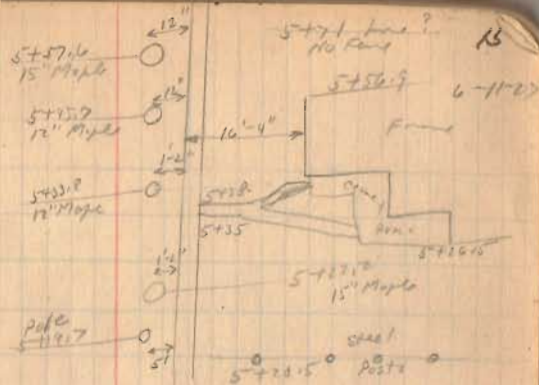 12"
No Fence
5+57.6
15" Maple
5+56.9
6-11-27
12"
5+45.7
12" Maple
16'-4"
Frame
1'-2"
5+33.8
12" Maple
5+38.
Conc.
5+35
5+26.5
1'-2"
15" Maple
Pole
5+19.7
Steel
5+20.5
Posts